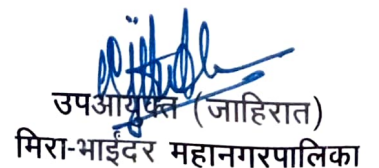 उपआयुक्त (जाहिरात)
मिरा-भाईंदर महानगरपालिका